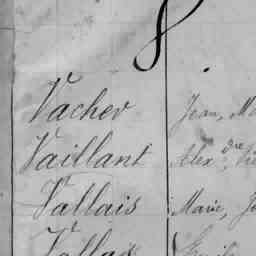 8
Vacher Jean, Ma
Vaillant Alex.dre
Vallais Marie, Je
Vallas Emile